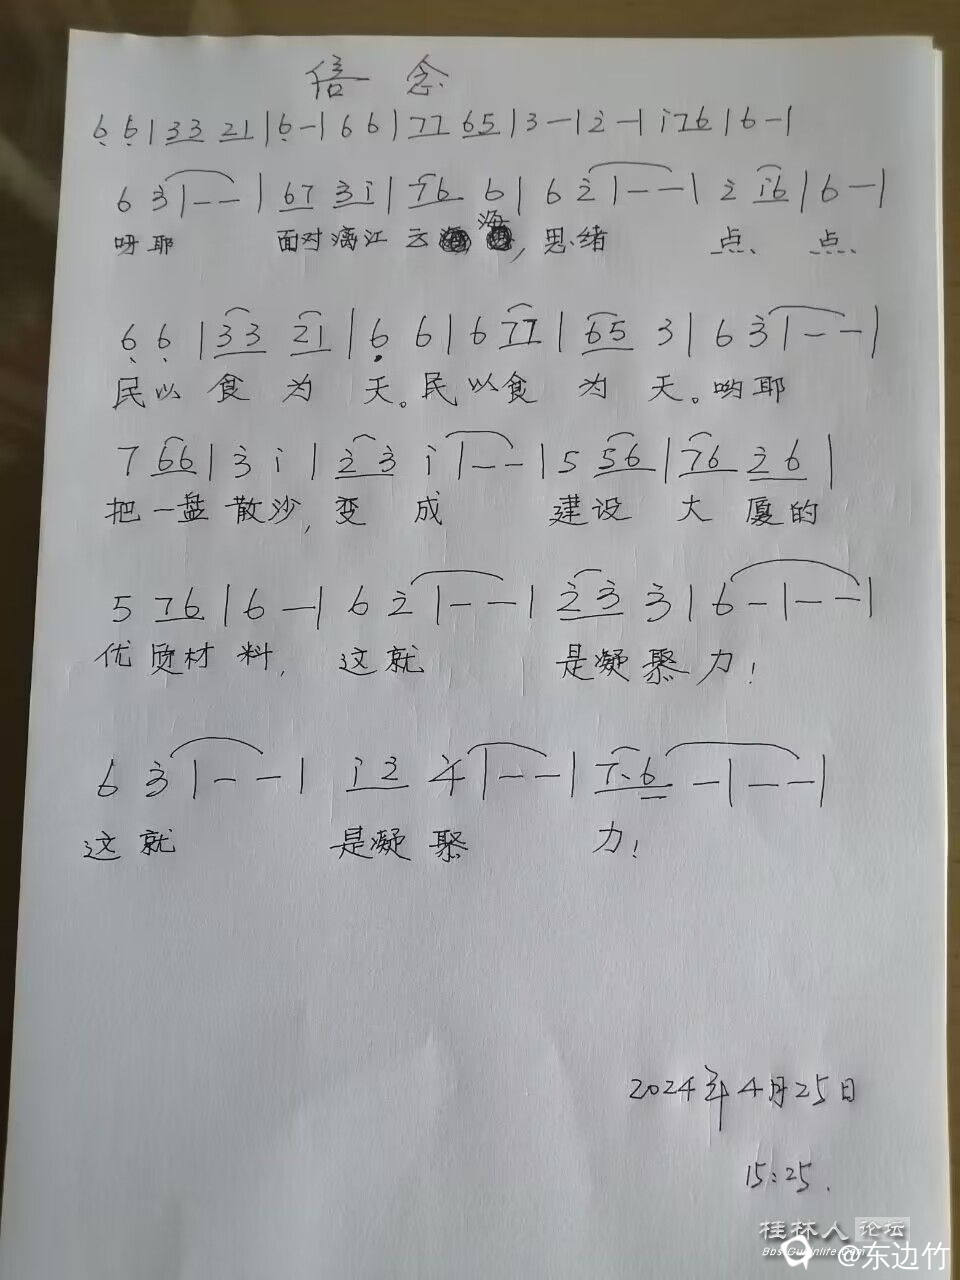 信念
6̣ 6̣ | 33 21 | 6̣ - | 6 6 | 77 65 | 3 - | 2 - | i 76 | 6 - |
6 3̇ | - - | 67 3̇i | 76 6 | 6 2̇ | - - | 2̇ i6 | 6 - |
呀耶 面对漓江云海,思绪 点、点、
6̣ 6̣ | 33 21 | 6̣ 6 | 6 77 | 65 3 | 6 3̇ | - - |
民以食为天。民以食为天。哟耶
7 66 | 3̇ i | 2̇3̇ i | - - | 5 56 | 76 2̇6 |
把一盘散沙,变成 建设大厦的
5 76 | 6 - | 6 2̇ | - - | 2̇3̇ 3̇ | 6 - | - - |
优质材料,这就 是凝聚力!
6 3̇ | - - | i2̇ 4̇ | - - | 7.6 - | - - |
这就 是凝聚 力!
2024年4月25日
15:25.
桂林人论坛
@东边竹